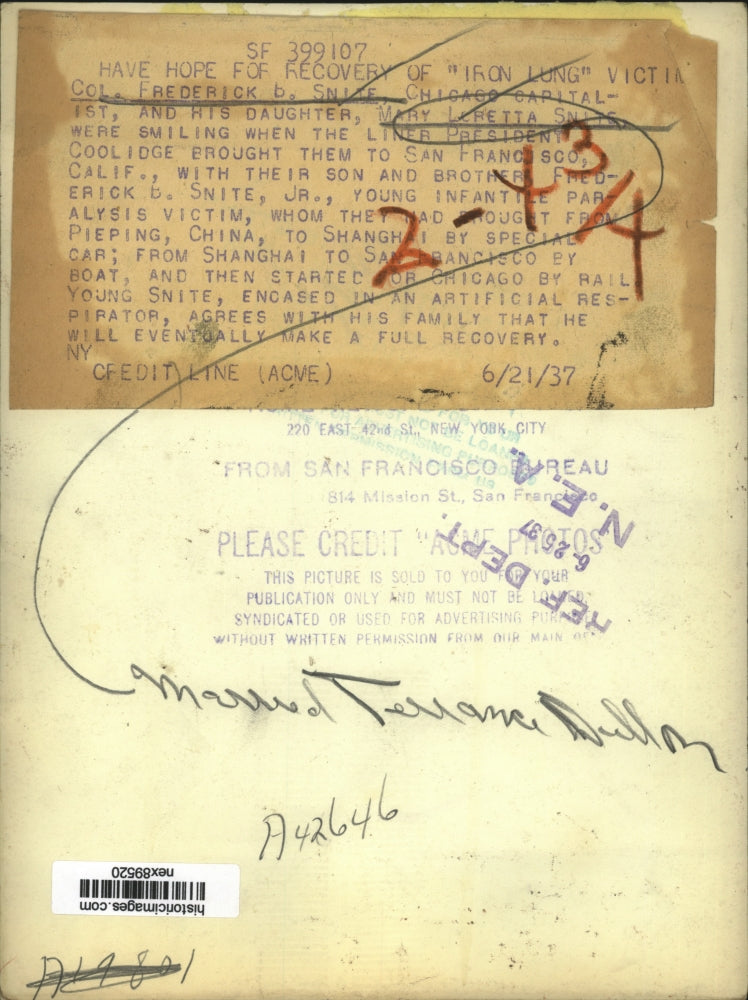 SF 399107
HAVE HOPE FOF RECOVERY OF "IRON LUNG" VICTIM
COL. FREDERICK B. SNITE, CHICAGO CAPITAL-
IST, AND HIS DAUGHTER, MARY LORETTA SNITE,
WERE SMILING WHEN THE LINER PRESIDENT
COOLIDGE BROUGHT THEM TO SAN FRANCISCO,
CALIF., WITH THEIR SON AND BROTHER, FRED-
ERICK B. SNITE, JR., YOUNG INFANTILE PAR-
ALYSIS VICTIM, WHOM THEY HAD BROUGHT FROM
PIEPING, CHINA, TO SHANGHAI BY SPECIAL
CAR; FROM SHANGHAI TO SAN FRANCISCO BY
BOAT, AND THEN STARTED FOR CHICAGO BY RAIL
YOUNG SNITE, ENCASED IN AN ARTIFICIAL RES-
PIRATOR, AGREES WITH HIS FAMILY THAT HE
WILL EVENTUALLY MAKE A FULL RECOVERY.
NY
CREDIT LINE (ACME) 6/21/37
2-4 3/4
220 EAST 42nd St., NEW YORK CITY
FROM SAN FRANCISCO BUREAU
814 Mission St., San Francisco
PLEASE CREDIT "ACME PHOTOS
THIS PICTURE IS SOLD TO YOU FOR YOUR
PUBLICATION ONLY AND MUST NOT BE LOANED
SYNDICATED OR USED FOR ADVERTISING PURPOSES
WITHOUT WRITTEN PERMISSION FROM OUR MAIN
N. E. A.
6-25 37
REF. DEPT.
Married Terrance Dillon
A42646
nex89520
historicimages.com
A19801